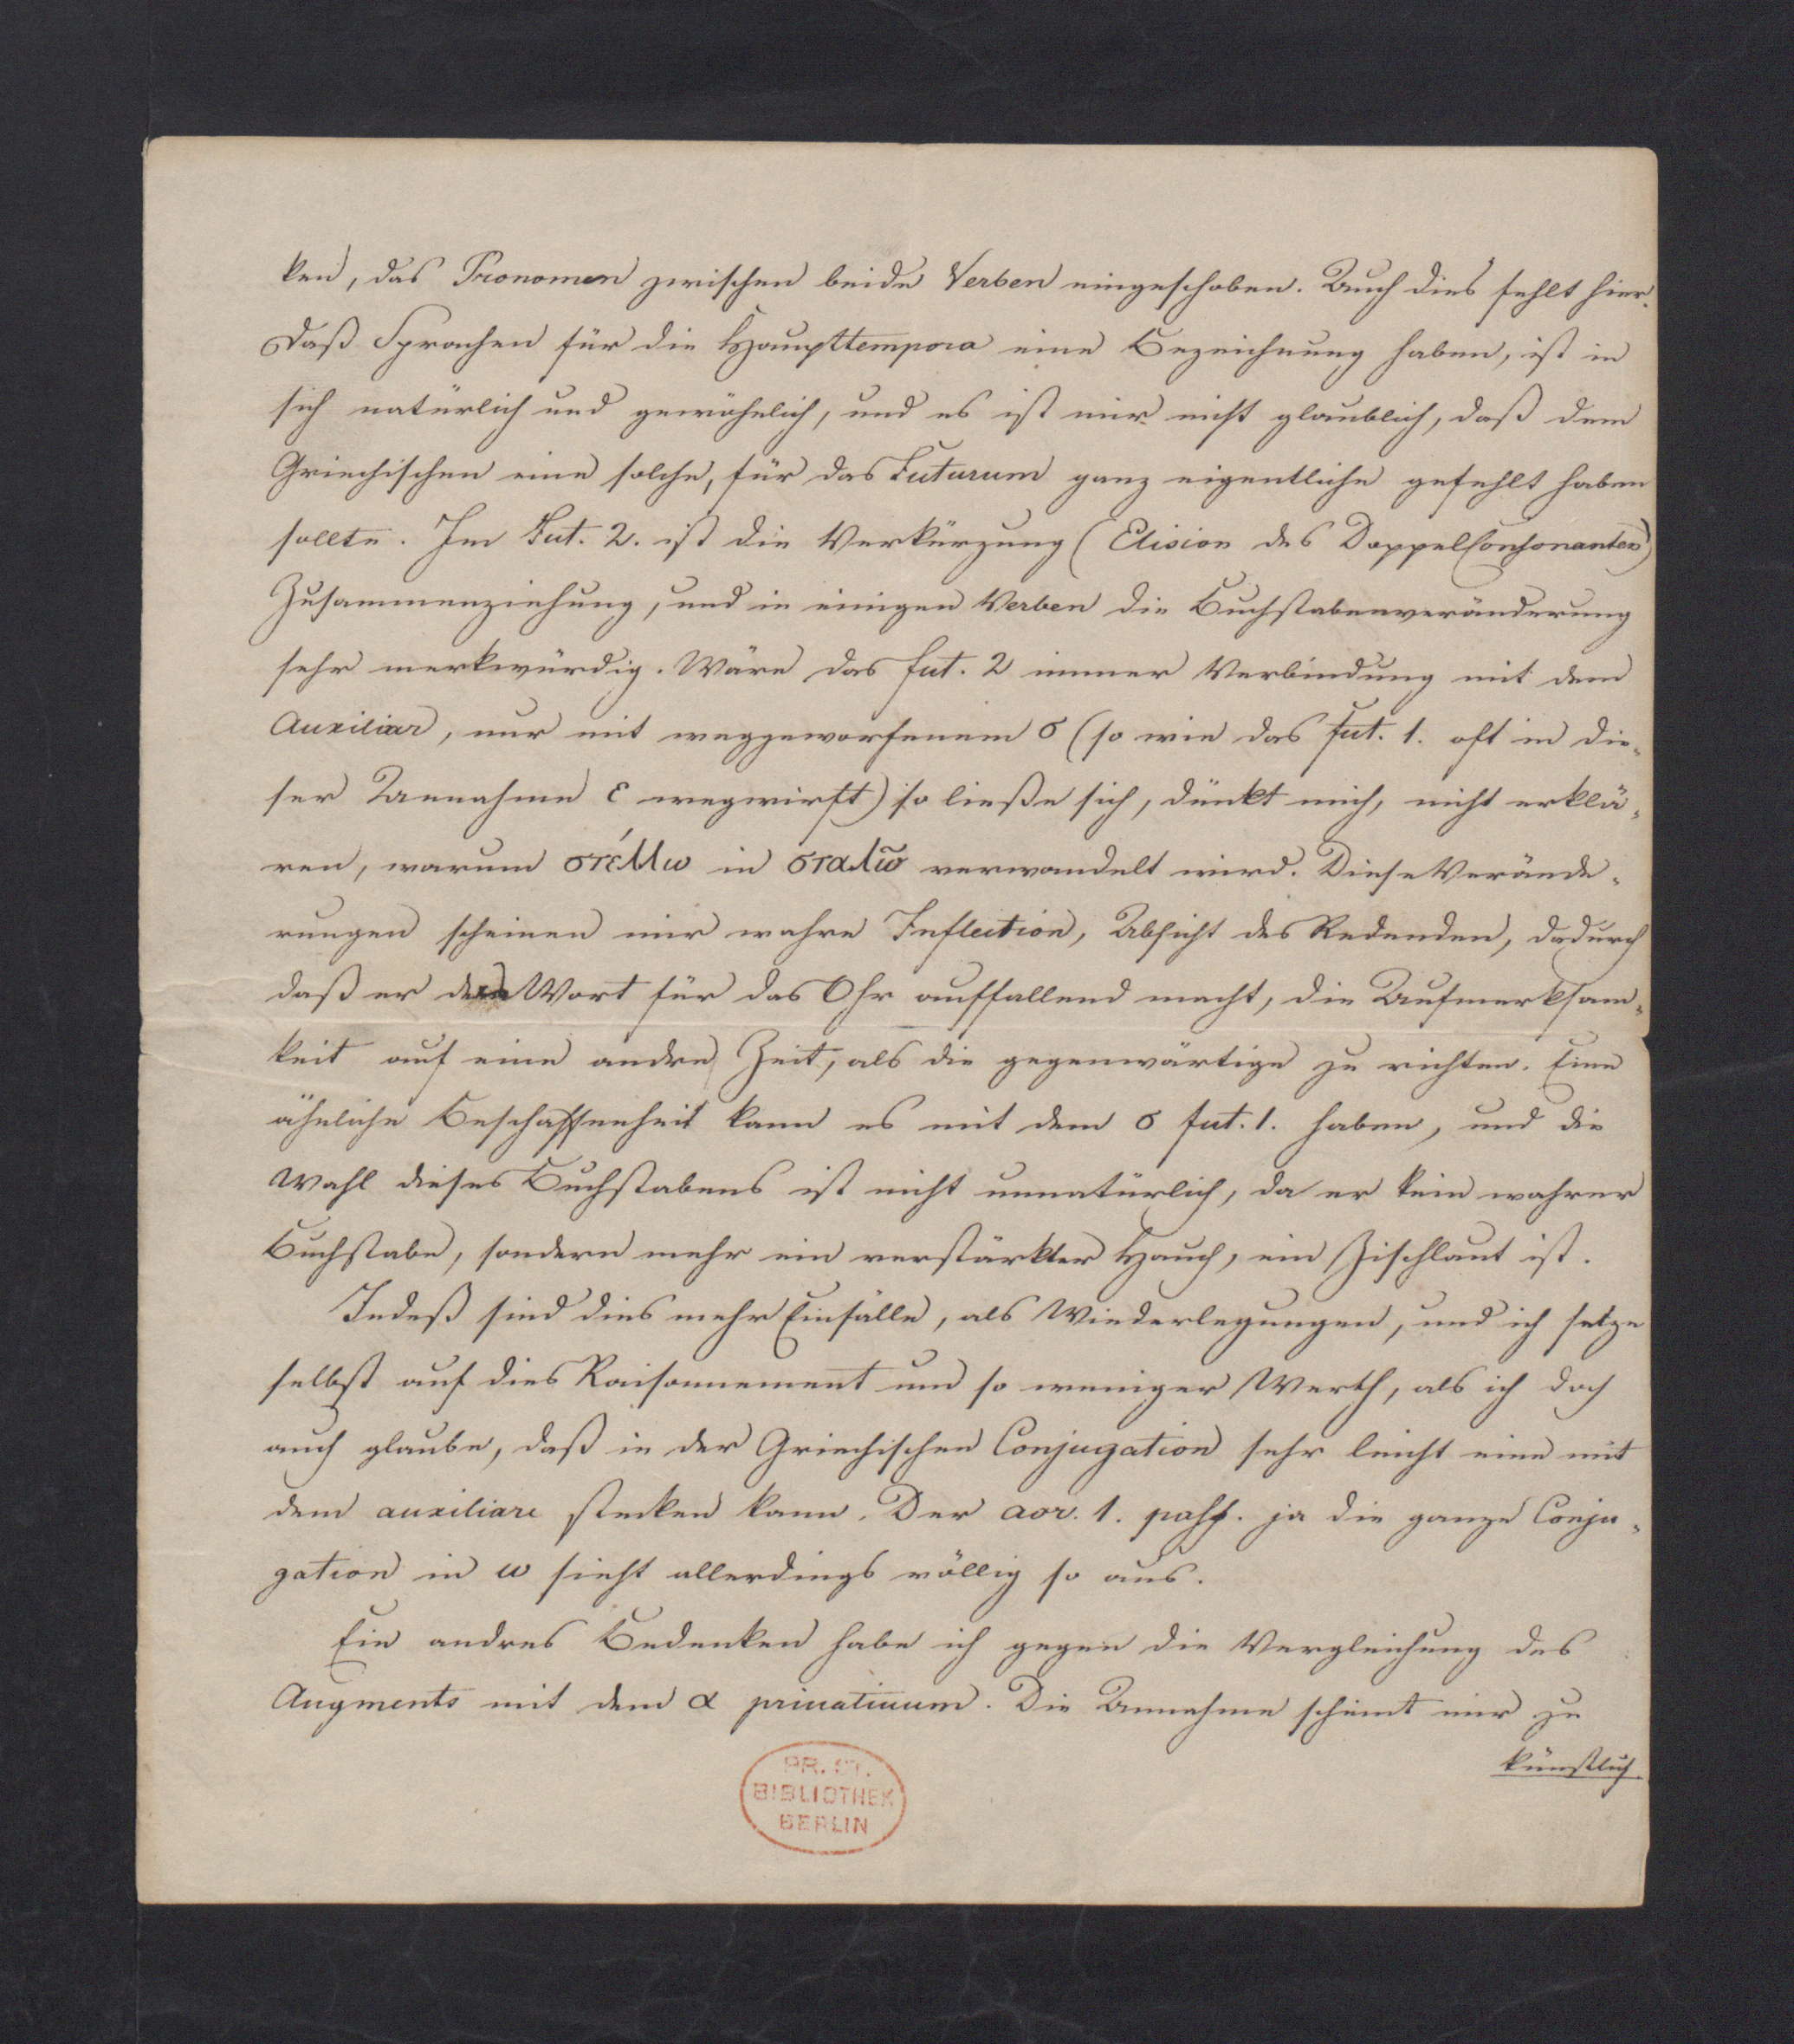 ken, das Pronomen zwischen beide Verben eingeschoben. Auch dies fehlt hier.
Daß Sprachen für die Haupttempora eine Bezeichnung haben, ist in
sich natürlich und gewöhnlich, und es ist mir nicht glaublich, daß dem
Griechischen eine solche, für das Futurum ganz eigentliche gefehlt haben
sollte. Im Fut. 2. ist die Verkürzung (Elision des DoppelConsonanten)
Zusammenziehung, und in einigen Verben die Buchstabenveränderung
sehr merkwürdig. Wäre das fut. 2 immer Verbindung mit dem
Auxiliar, nur mit weggeworfenem σ (so wie das fut. 1. oft in die-
ser Annahme ε wegwirft) so ließe sich, dünkt mich, nicht erklä-
ren, warum στέλλω in σταλῶ verwandelt wird. Diese Verände-
rungen scheinen mir wahre Inflection, Absicht des Redenden, dadurch
daß er Wort für das Ohr auffallend macht, die Aufmerksam-
keit auf eine andre Zeit, als die gegenwärtige zu richten. Eine
ähnliche Beschaffenheit kann es mit dem σ fut. 1. haben, und die
Wahl dieses Buchstabens ist nicht unnatürlich, da er kein wahrer
Buchstabe, sondern mehr ein verstärkter Hauch, ein Zischlaut ist.
Indeß sind dies mehr Einfälle, als Wiederlegungen, und ich setze
selbst auf dies Raisonnement um so weniger Werth, als ich doch
auch glaube, daß in der Griechischen Conjugation sehr leicht eine mit
dem auxiliare stecken kann. Der aor. 1. pass. ja die ganze Conju-
gation in ω sieht allerdings völlig so aus.
Ein andres Bedenken habe ich gegen die Vergleichung des
Augments mit dem α privativum. Die Annahme scheint mir zu
künstlich
PR. ST.
BIBLIOTHEK
BERLIN